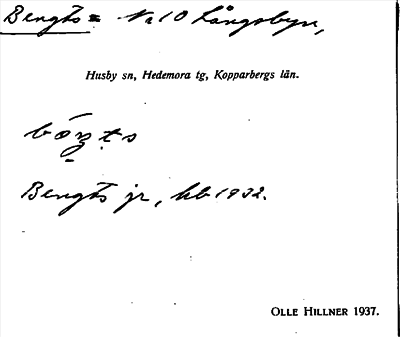 Bengts = No 10 Långsbyn,
Husby sn, Hedemora tg, Kopparbergs län.
Bengts jr, hb 1932.
OLLE HILLNER 1937.